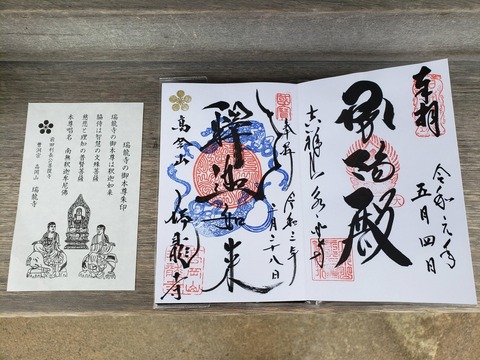 奉拝
承陽殿
令和元年
五月四日
吉祥山 永平寺
奉拝
令和三年
二月二十八日
釋迦如来
高岡山
瑞龍寺
瑞龍寺の御本尊朱印
瑞龍寺の御本尊は釈迦如来
脇侍は智慧の文殊菩薩
慈悲と理知の普賢菩薩
本尊唱名 南無釈迦牟尼佛
前田利長公菩提寺
曹洞宗 高岡山 瑞龍寺